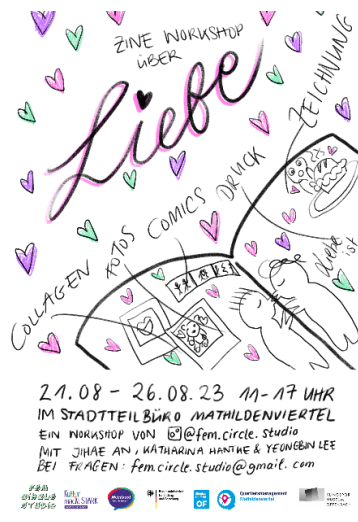 ZINE WORKSHOP
ÜBER
Liebe
ZEICHNUNG
DRUCK
COMICS
FOTOS
COLLAGEN
Liebe
ist
21.08 - 26.08.23 11-17 UHR
IM STADTTEILBÜRO MATHILDENVIERTEL
EIN WORKSHOP VON @fem.circle.studio
MIT JIHAE AN, KATHARINA HANTKE & YEONGBIN LEE
BEI FRAGEN: fem.circle.studio@gmail.com
FEM
CIRCLE
STUDIO
OF
Quartiersmanagement
Mathildenviertel